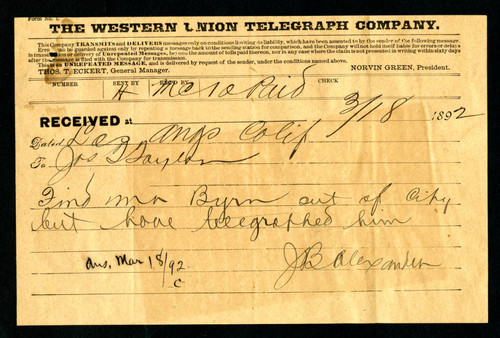 Form No. 1.
THE WESTERN UNION TELEGRAPH COMPANY.
This Company TRANSMITS and DELIVERS messages only on conditions limiting its liability, which have been assented to by the sender of the following message.
Errors can be guarded against only by repeating a message back to the sending station for comparison, and the Company will not hold itself liable for errors or delays
in transmission or delivery of Unrepeated Messages, beyond the amount of tolls paid thereon, nor in any case where the claim is not presented in writing within sixty days
after the message is filed with the Company for transmission.
This is an UNREPEATED MESSAGE, and is delivered by request of the sender, under the conditions named above.
THOS. T. ECKERT, General Manager. NORVIN GREEN, President.
NUMBER SENT BY REC'D BY CHECK
H Mc 10 Paid
RECEIVED at 3/18 1892
Dated Los Angs Calif
To Jos
Find Mr Byrn out of City
but have telegraphed him
J B Alexander
ans. Mar 18/92
C